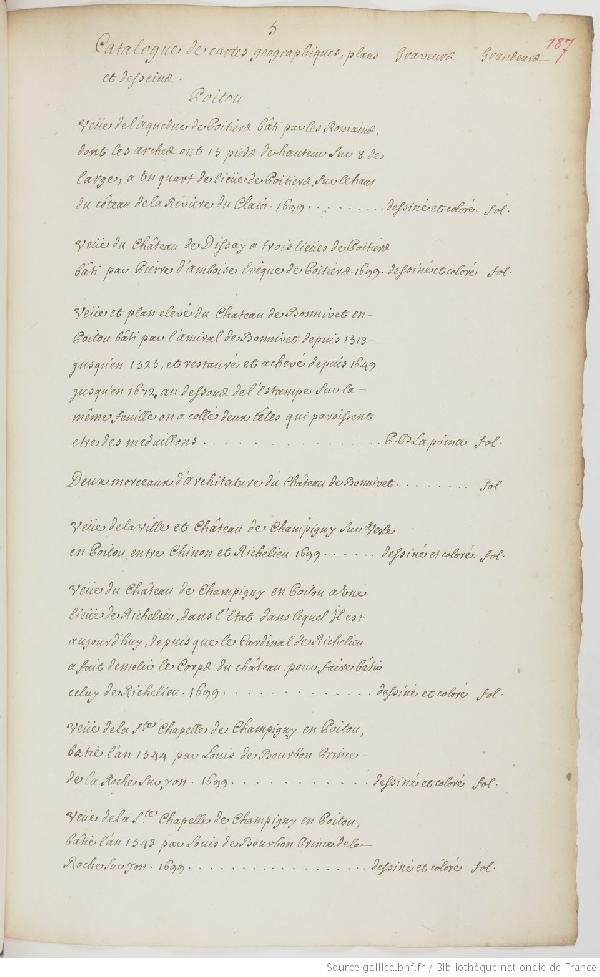 5
187
Catalogue de cartes geographiques, plans Graveurs Grandeurs
et desseins.
Poitou
Veüe de l'aqueduc de Poitiers bâti par les Romains,
dont les arches ont 15 pieds de hauteur sur 8 de
large, a un quart de lieüe de Poitiers sur le haut
du côteau de la Riviere du Clain. 1699 . . . . . . . . dessiné et coloré fol.
Veüe du Château de Dissay a trois lieües de Poitiers
bâti par Pierre d'amboise Evêque de Poitiers 1699. dessiné et coloré fol.
Veüe et plan elevé du Chateau de Bonnivet en
Poitou bâti par l'amiral de Bonnivet depuis 1513
jusqu'en 1525, et restauré et achevé depuis 1649
jusqu'en 1672, au dessous de l'Estampe sur la
même feuille on a collé deux têtes qui paroissent
etre des medaillons . . . . . . . . . . . . . . . . P. P. Lapointe fol.
Deux morceaux d'architature du Château de Bonnivet . . . . . . . . fol
Veüe de la ville et Château de Champigny sur Vesle
en Poitou, entre Chinon et Richelieu 1699 . . . . . . dessiné et coloré fol.
Veüe du Château de Champigny en Poitou a une
lieüe de Richelieu, dans l'Etat dans lequel Il est
aujourd'huy, depuis que le Cardinal de Richelieu
a fait demolir le Corps du château, pour faire bâtir
celuy de Richelieu. 1699 . . . . . . . . . . . . . dessiné et coloré fol.
Veüe de la Ste Chapelle de Champigny en Poitou,
batie l'an 1544 par Louis de Bourbon Prince
de la Roche Suryon. 1699 . . . . . . . . . . . . dessiné et coloré fol.
Veüe de la Ste Chapelle de Champigny en Poitou,
bâtie l'an 1543 par Louis de Bourbon Prince de la
Roche Sur Yon. 1699 . . . . . . . . . . . . . . . dessiné et coloré fol.
Source gallica.bnf.fr / Bibliothèque nationale de France